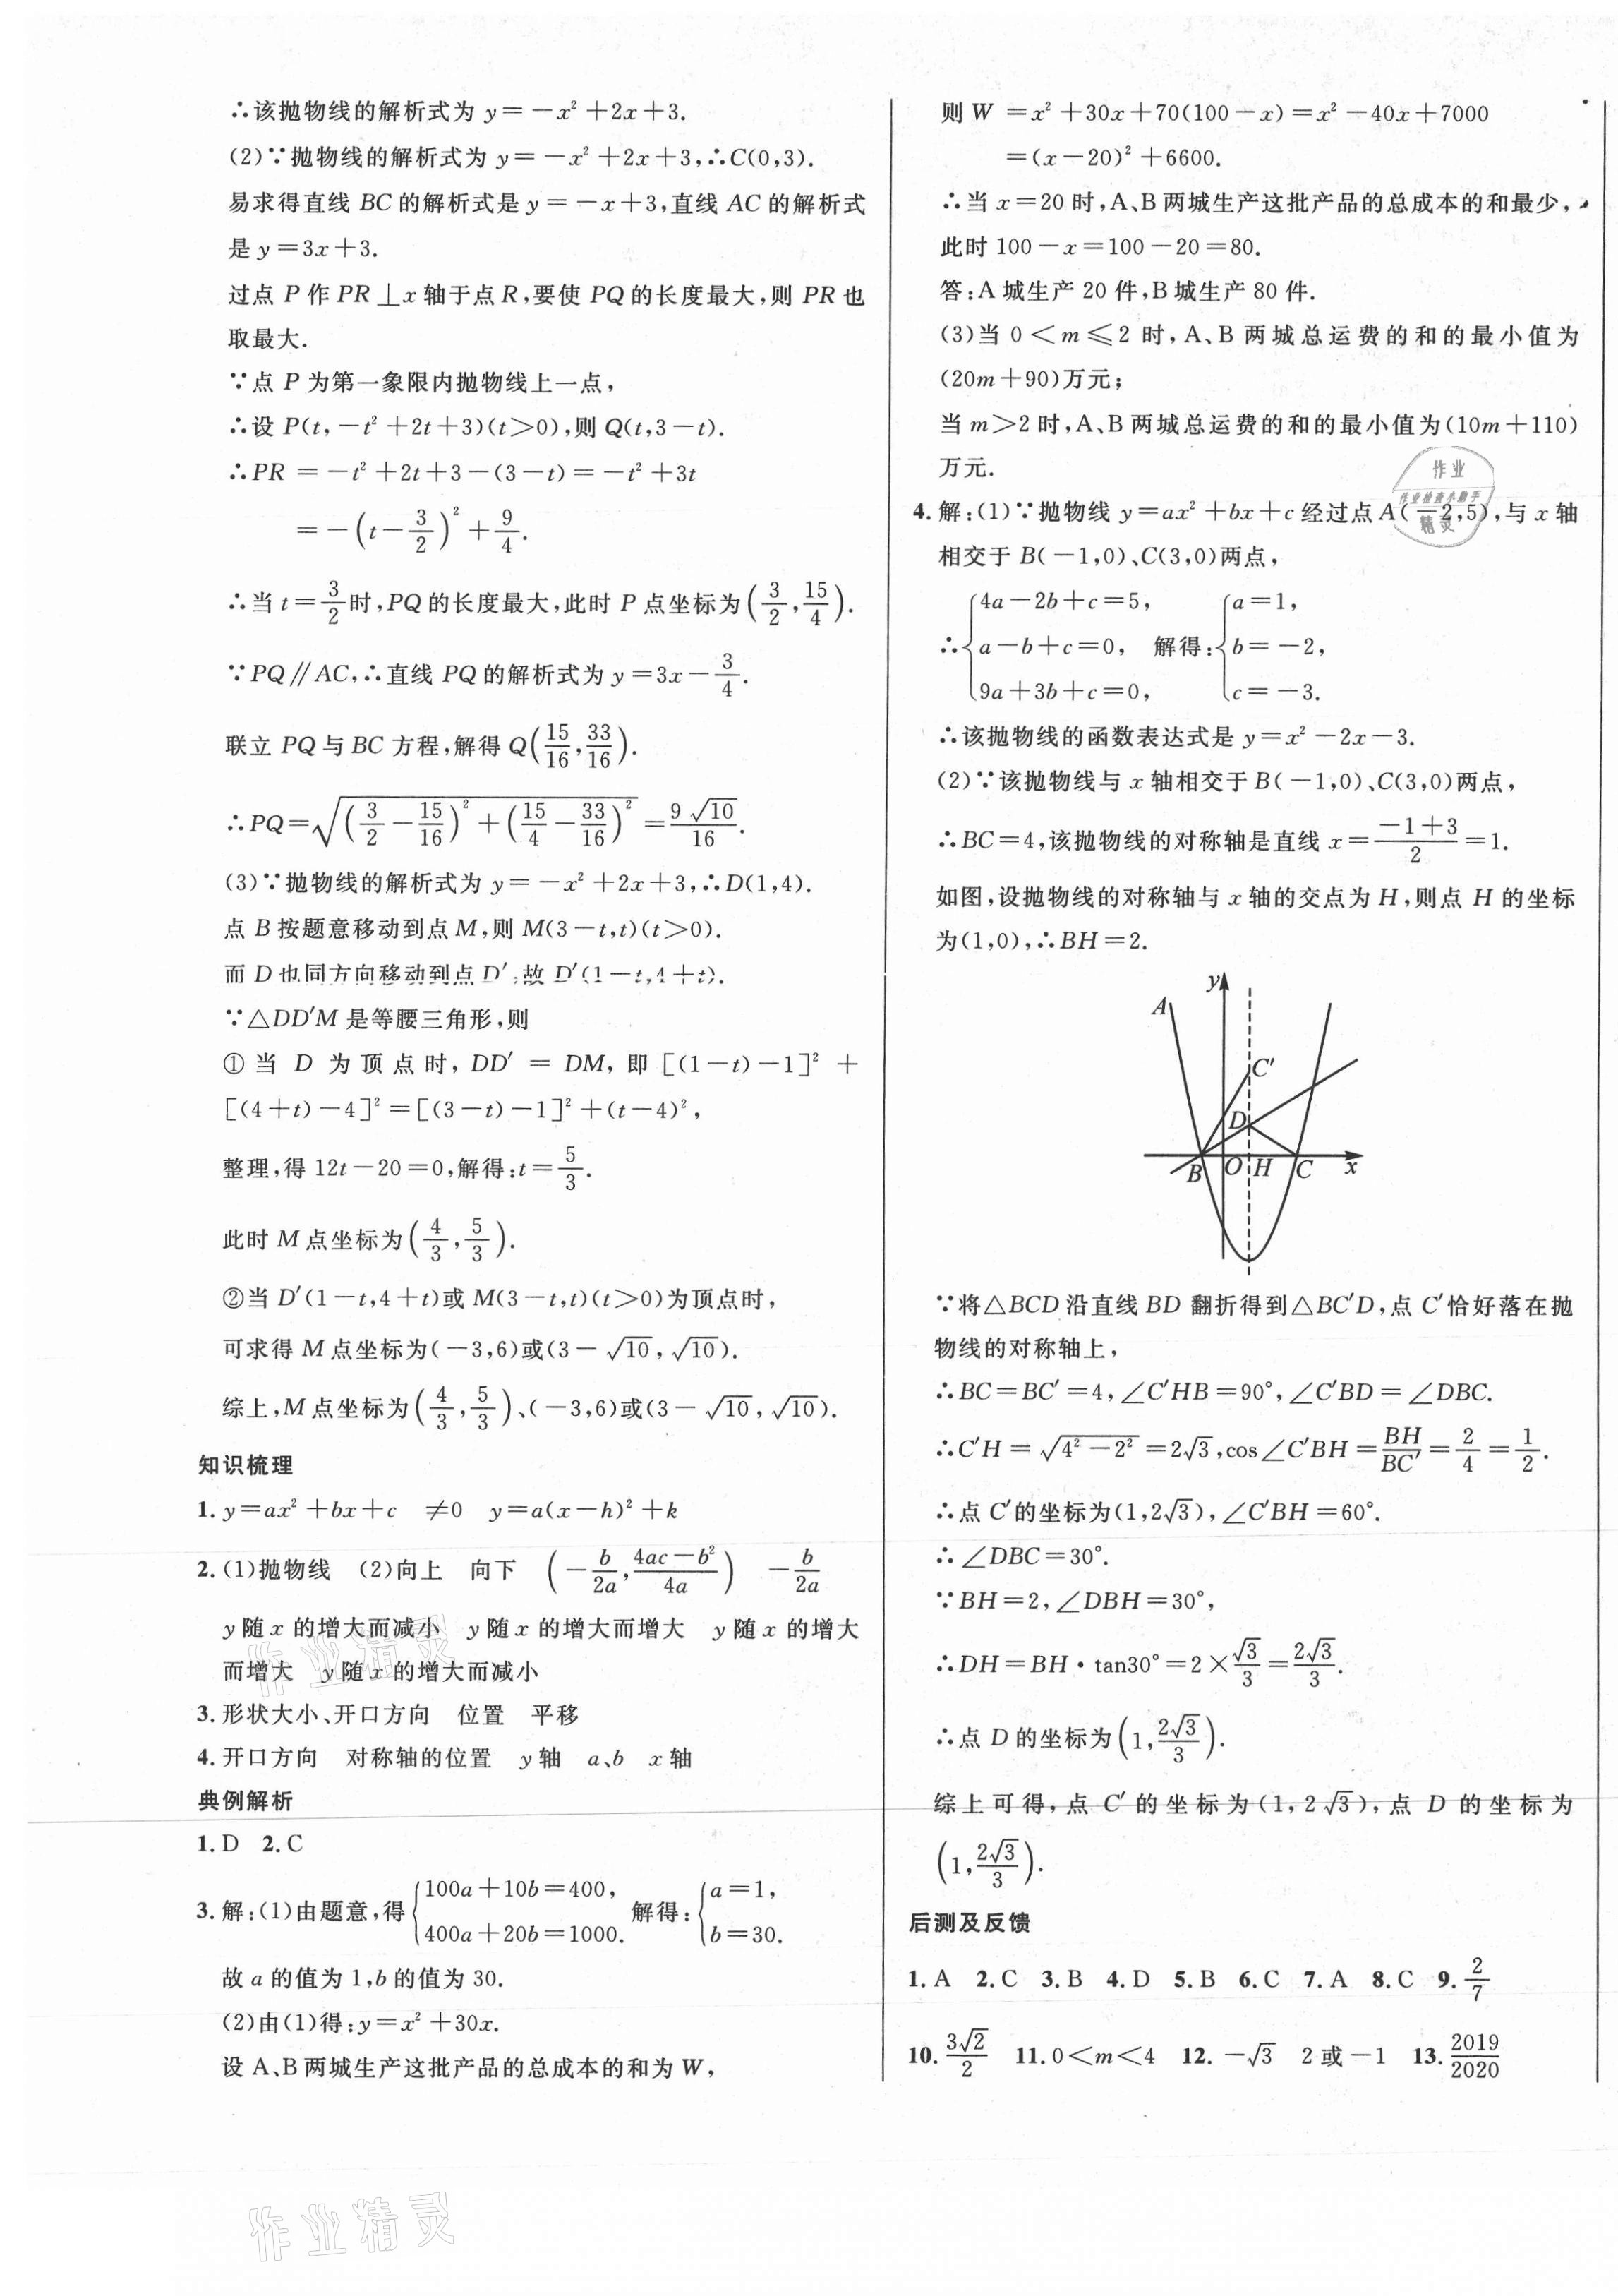 ∴该抛物线的解析式为 y=-x²+2x+3.
(2)∵抛物线的解析式为 y=-x²+2x+3,∴C(0,3).
易求得直线 BC 的解析式是 y=-x+3,直线 AC 的解析式
是 y=3x+3.
过点 P 作 PR⊥x 轴于点 R,要使 PQ 的长度最大,则 PR 也
取最大.
∵点 P 为第一象限内抛物线上一点,
∴设 P(t,-t²+2t+3)(t>0),则 Q(t,3-t).
∴PR=-t²+2t+3-(3-t)=-t²+3t
=-(t-3/2)²+9/4.
∴当 t=3/2时,PQ 的长度最大,此时 P 点坐标为(3/2,15/4).
∵PQ∥AC,∴直线 PQ 的解析式为 y=3x-3/4.
联立 PQ 与 BC 方程,解得 Q(15/16,33/16).
∴PQ=√((3/2-15/16)²+(15/4-33/16)²)=9√10/16.
(3)∵抛物线的解析式为 y=-x²+2x+3,∴D(1,4).
点 B 按题意移动到点 M,则 M(3-t,t)(t>0).
而 D 也同方向移动到点 D′,故 D′(1-t,4+t).
∵△DD′M 是等腰三角形,则
①当 D 为顶点时,DD′=DM,即[(1-t)-1]²+
[(4+t)-4]²=[(3-t)-1]²+(t-4)²,
整理,得 12t-20=0,解得:t=5/3.
此时 M 点坐标为(4/3,5/3).
②当 D′(1-t,4+t)或 M(3-t,t)(t>0)为顶点时,
可求得 M 点坐标为(-3,6)或(3-√10,√10).
综上,M 点坐标为(4/3,5/3)、(-3,6)或(3-√10,√10).
知识梳理
1. y=ax²+bx+c ≠0 y=a(x-h)²+k
2. (1)抛物线 (2)向上 向下 (-b/2a,(4ac-b²)/4a) -b/2a
y 随 x 的增大而减小 y 随 x 的增大而增大 y 随 x 的增大
而增大 y 随 x 的增大而减小
3. 形状大小、开口方向 位置 平移
4. 开口方向 对称轴的位置 y 轴 a、b x 轴
典例解析
1. D 2. C
3. 解:(1)由题意,得{100a+10b=400, 400a+20b=1000. 解得:{a=1, b=30.
故 a 的值为 1,b 的值为 30.
(2)由(1)得:y=x²+30x.
设 A、B 两城生产这批产品的总成本的和为 W,
则 W=x²+30x+70(100-x)=x²-40x+7000
=(x-20)²+6600.
∴当 x=20 时,A、B 两城生产这批产品的总成本的和最少,
此时 100-x=100-20=80.
答:A 城生产 20 件,B 城生产 80 件.
(3)当 0<m≤2 时,A、B 两城总运费的和的最小值为
(20m+90)万元;
当 m>2 时,A、B 两城总运费的和的最小值为(10m+110)
万元.
4. 解:(1)∵抛物线 y=ax²+bx+c 经过点 A(-2,5),与 x 轴
相交于 B(-1,0)、C(3,0)两点,
∴{4a-2b+c=5, a-b+c=0, 9a+3b+c=0, 解得:{a=1, b=-2, c=-3.
∴该抛物线的函数表达式是 y=x²-2x-3.
(2)∵该抛物线与 x 轴相交于 B(-1,0)、C(3,0)两点,
∴BC=4,该抛物线的对称轴是直线 x=(-1+3)/2=1.
如图,设抛物线的对称轴与 x 轴的交点为 H,则点 H 的坐标
为(1,0),∴BH=2.
y
A
C′
D
B O H C x
∵将△BCD 沿直线 BD 翻折得到△BC′D,点 C′恰好落在抛
物线的对称轴上,
∴BC=BC′=4,∠C′HB=90°,∠C′BD=∠DBC.
∴C′H=√(4²-2²)=2√3,cos∠C′BH=BH/BC′=2/4=1/2.
∴点 C′的坐标为(1,2√3),∠C′BH=60°.
∴∠DBC=30°.
∵BH=2,∠DBH=30°,
∴DH=BH·tan30°=2×√3/3=2√3/3.
∴点 D 的坐标为(1,2√3/3).
综上可得,点 C′的坐标为(1,2√3),点 D 的坐标为
(1,2√3/3).
后测及反馈
1. A 2. C 3. B 4. D 5. B 6. C 7. A 8. C 9. 2/7
10. 3√2/2 11. 0<m<4 12. -√3 2或-1 13. 2019/2020
作业
作业检查小助手
精灵
作业精灵
作业精灵